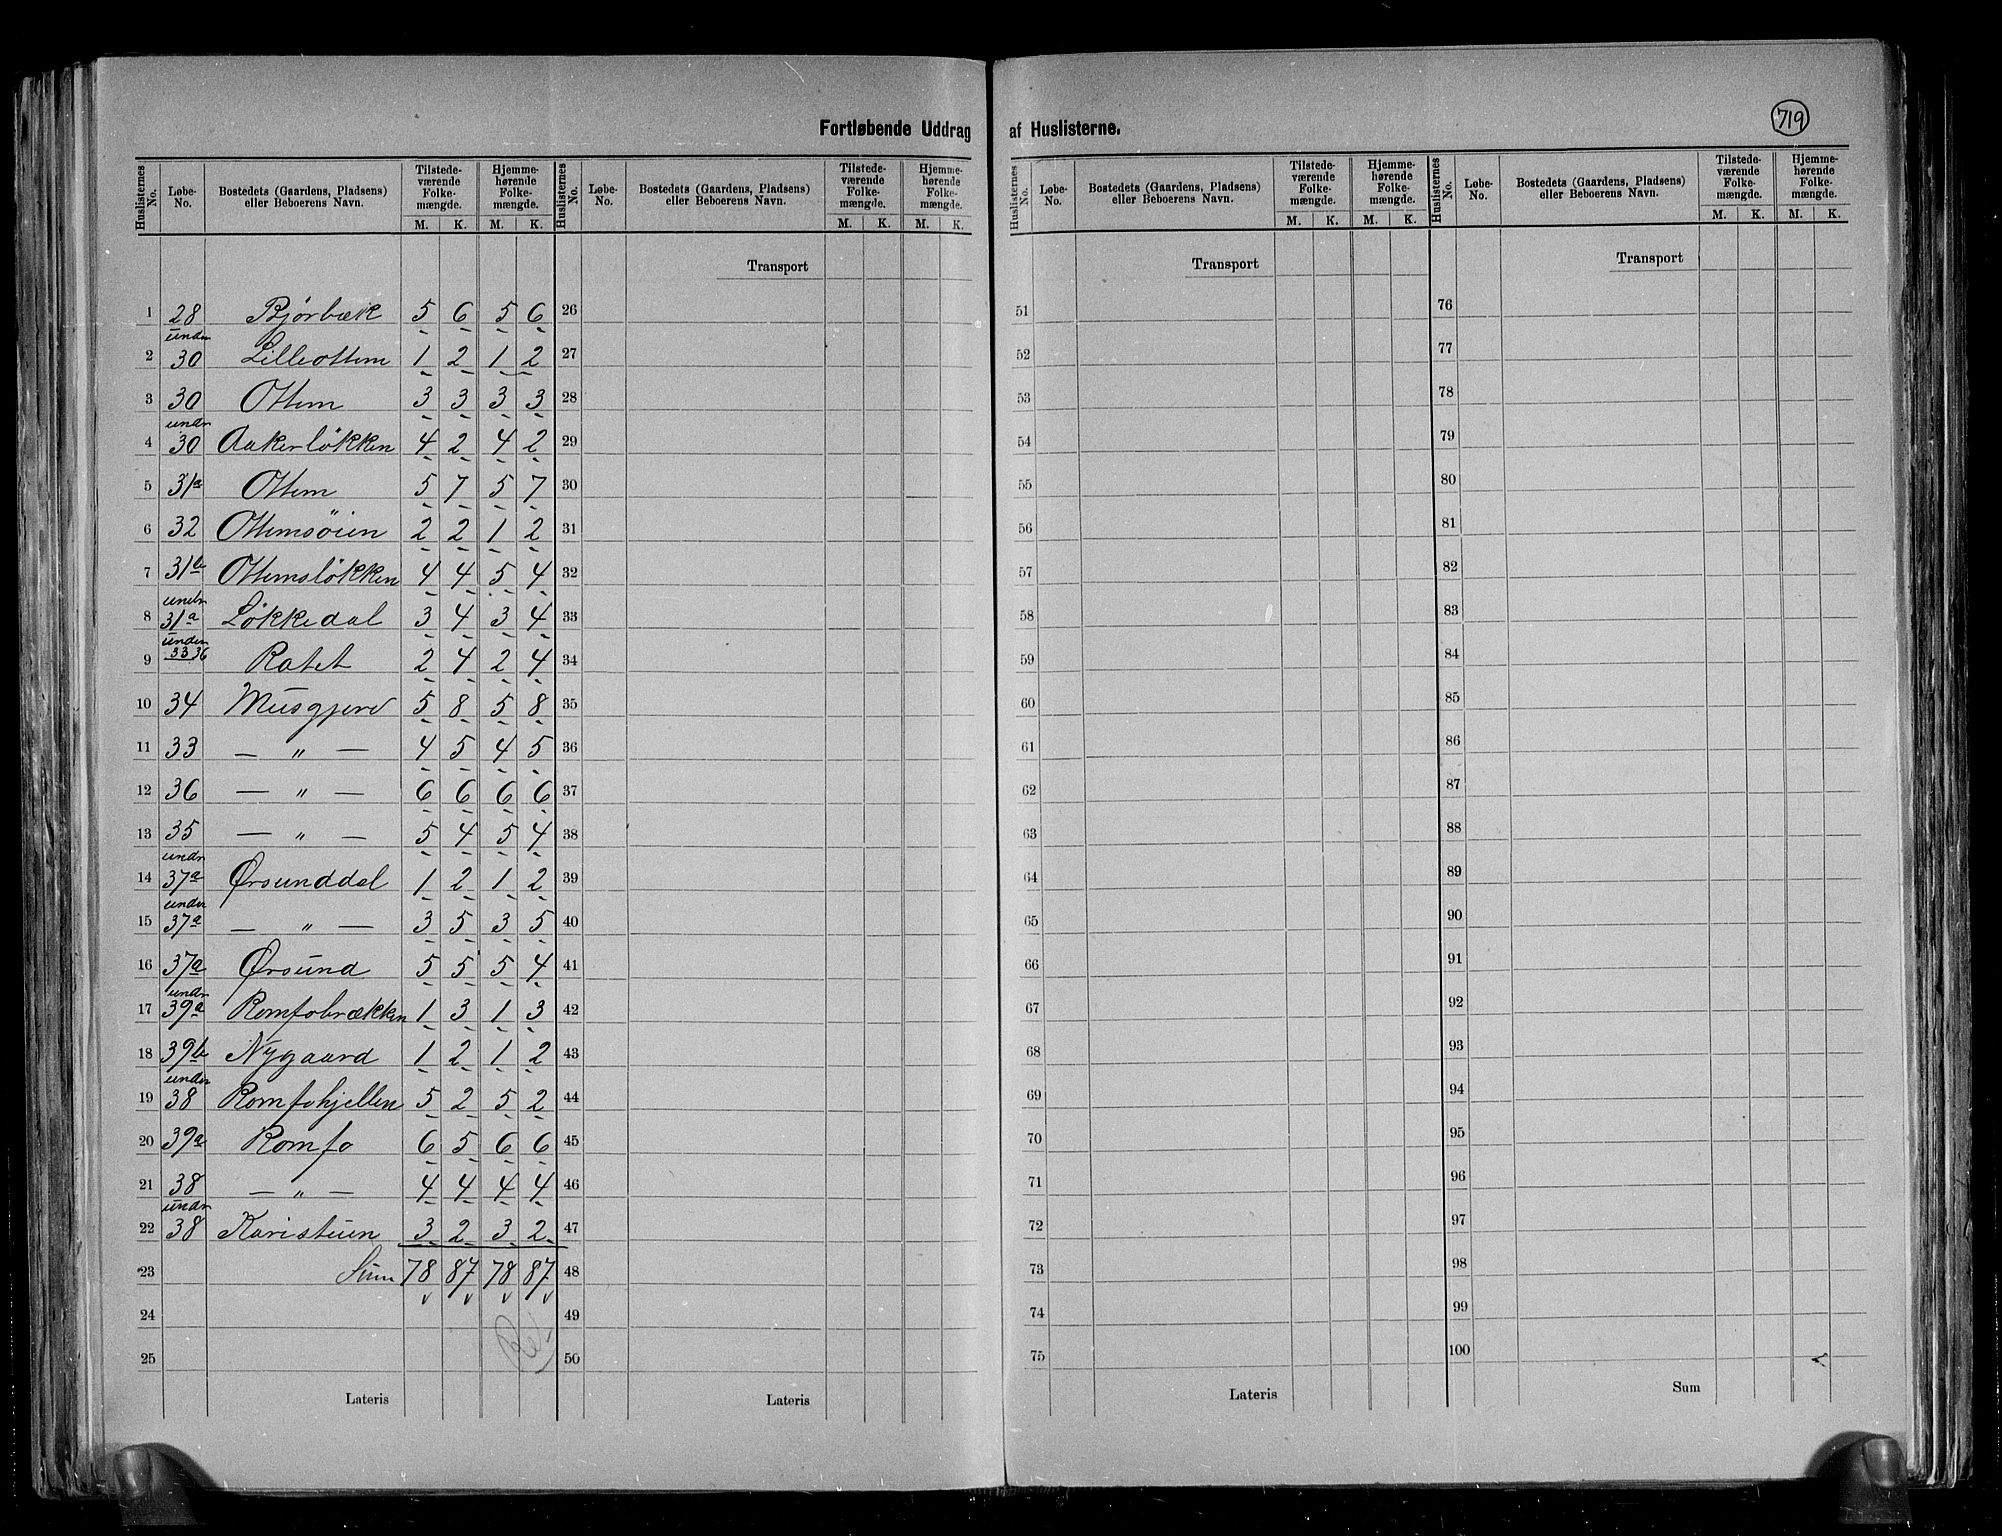 719
Fortløbende Uddrag af Huslisterne.
Huslisternes No. Løbe-No. Bostedets (Gaardens, Pladsens) eller Beboerens Navn. Tilstedeværende Folkemængde. M. K. Hjemmehørende Folkemængde. M. K.
Huslisternes No. Løbe-No. Bostedets (Gaardens, Pladsens) eller Beboerens Navn. Tilstedeværende Folkemængde. M. K. Hjemmehørende Folkemængde. M. K.
Huslisternes No. Løbe-No. Bostedets (Gaardens, Pladsens) eller Beboerens Navn. Tilstedeværende Folkemængde. M. K. Hjemmehørende Folkemængde. M. K.
Huslisternes No. Løbe-No. Bostedets (Gaardens, Pladsens) eller Beboerens Navn. Tilstedeværende Folkemængde. M. K. Hjemmehørende Folkemængde. M. K.
1 28 Bjørbæk 5 6 5 6
2 under 30 Lilleottem 1 2 1 2
3 30 Ottem 3 3 3 3
4 under 30 Aakerløkken 4 2 4 2
5 31a Ottem 5 7 5 7
6 32 Ottemsöien 2 2 1 2
7 31b Ottemsløkken 4 4 5 4
8 under 31a Løkkedal 3 4 3 4
9 under 33 36 Ratet 2 4 2 4
10 34 Musgjerd 5 8 5 8
11 33 — " — 4 5 4 5
12 36 — " — 6 6 6 6
13 35 — " — 5 4 5 4
14 under 37a Ørsunddal 1 2 1 2
15 under 37a — " — 3 5 3 5
16 37a Ørsund 5 5 5 4
17 under 39a Romfobrækken 1 3 1 3
18 39b Nygaard 1 2 1 2
19 under 38 Romfohjellen 5 2 5 2
20 39a Romfo 6 5 6 6
21 38 — " — 4 4 4 4
22 under 38 Karistuen 3 2 3 2
23 Sum 78 87 78 87
24
25
Lateris
Transport
26
27
28
29
30
31
32
33
34
35
36
37
38
39
40
41
42
43
44
45
46
47
48
49
50
Lateris
Transport
51
52
53
54
55
56
57
58
59
60
61
62
63
64
65
66
67
68
69
70
71
72
73
74
75
Lateris
Transport
76
77
78
79
80
81
82
83
84
85
86
87
88
89
90
91
92
93
94
95
96
97
98
99
100
Sum